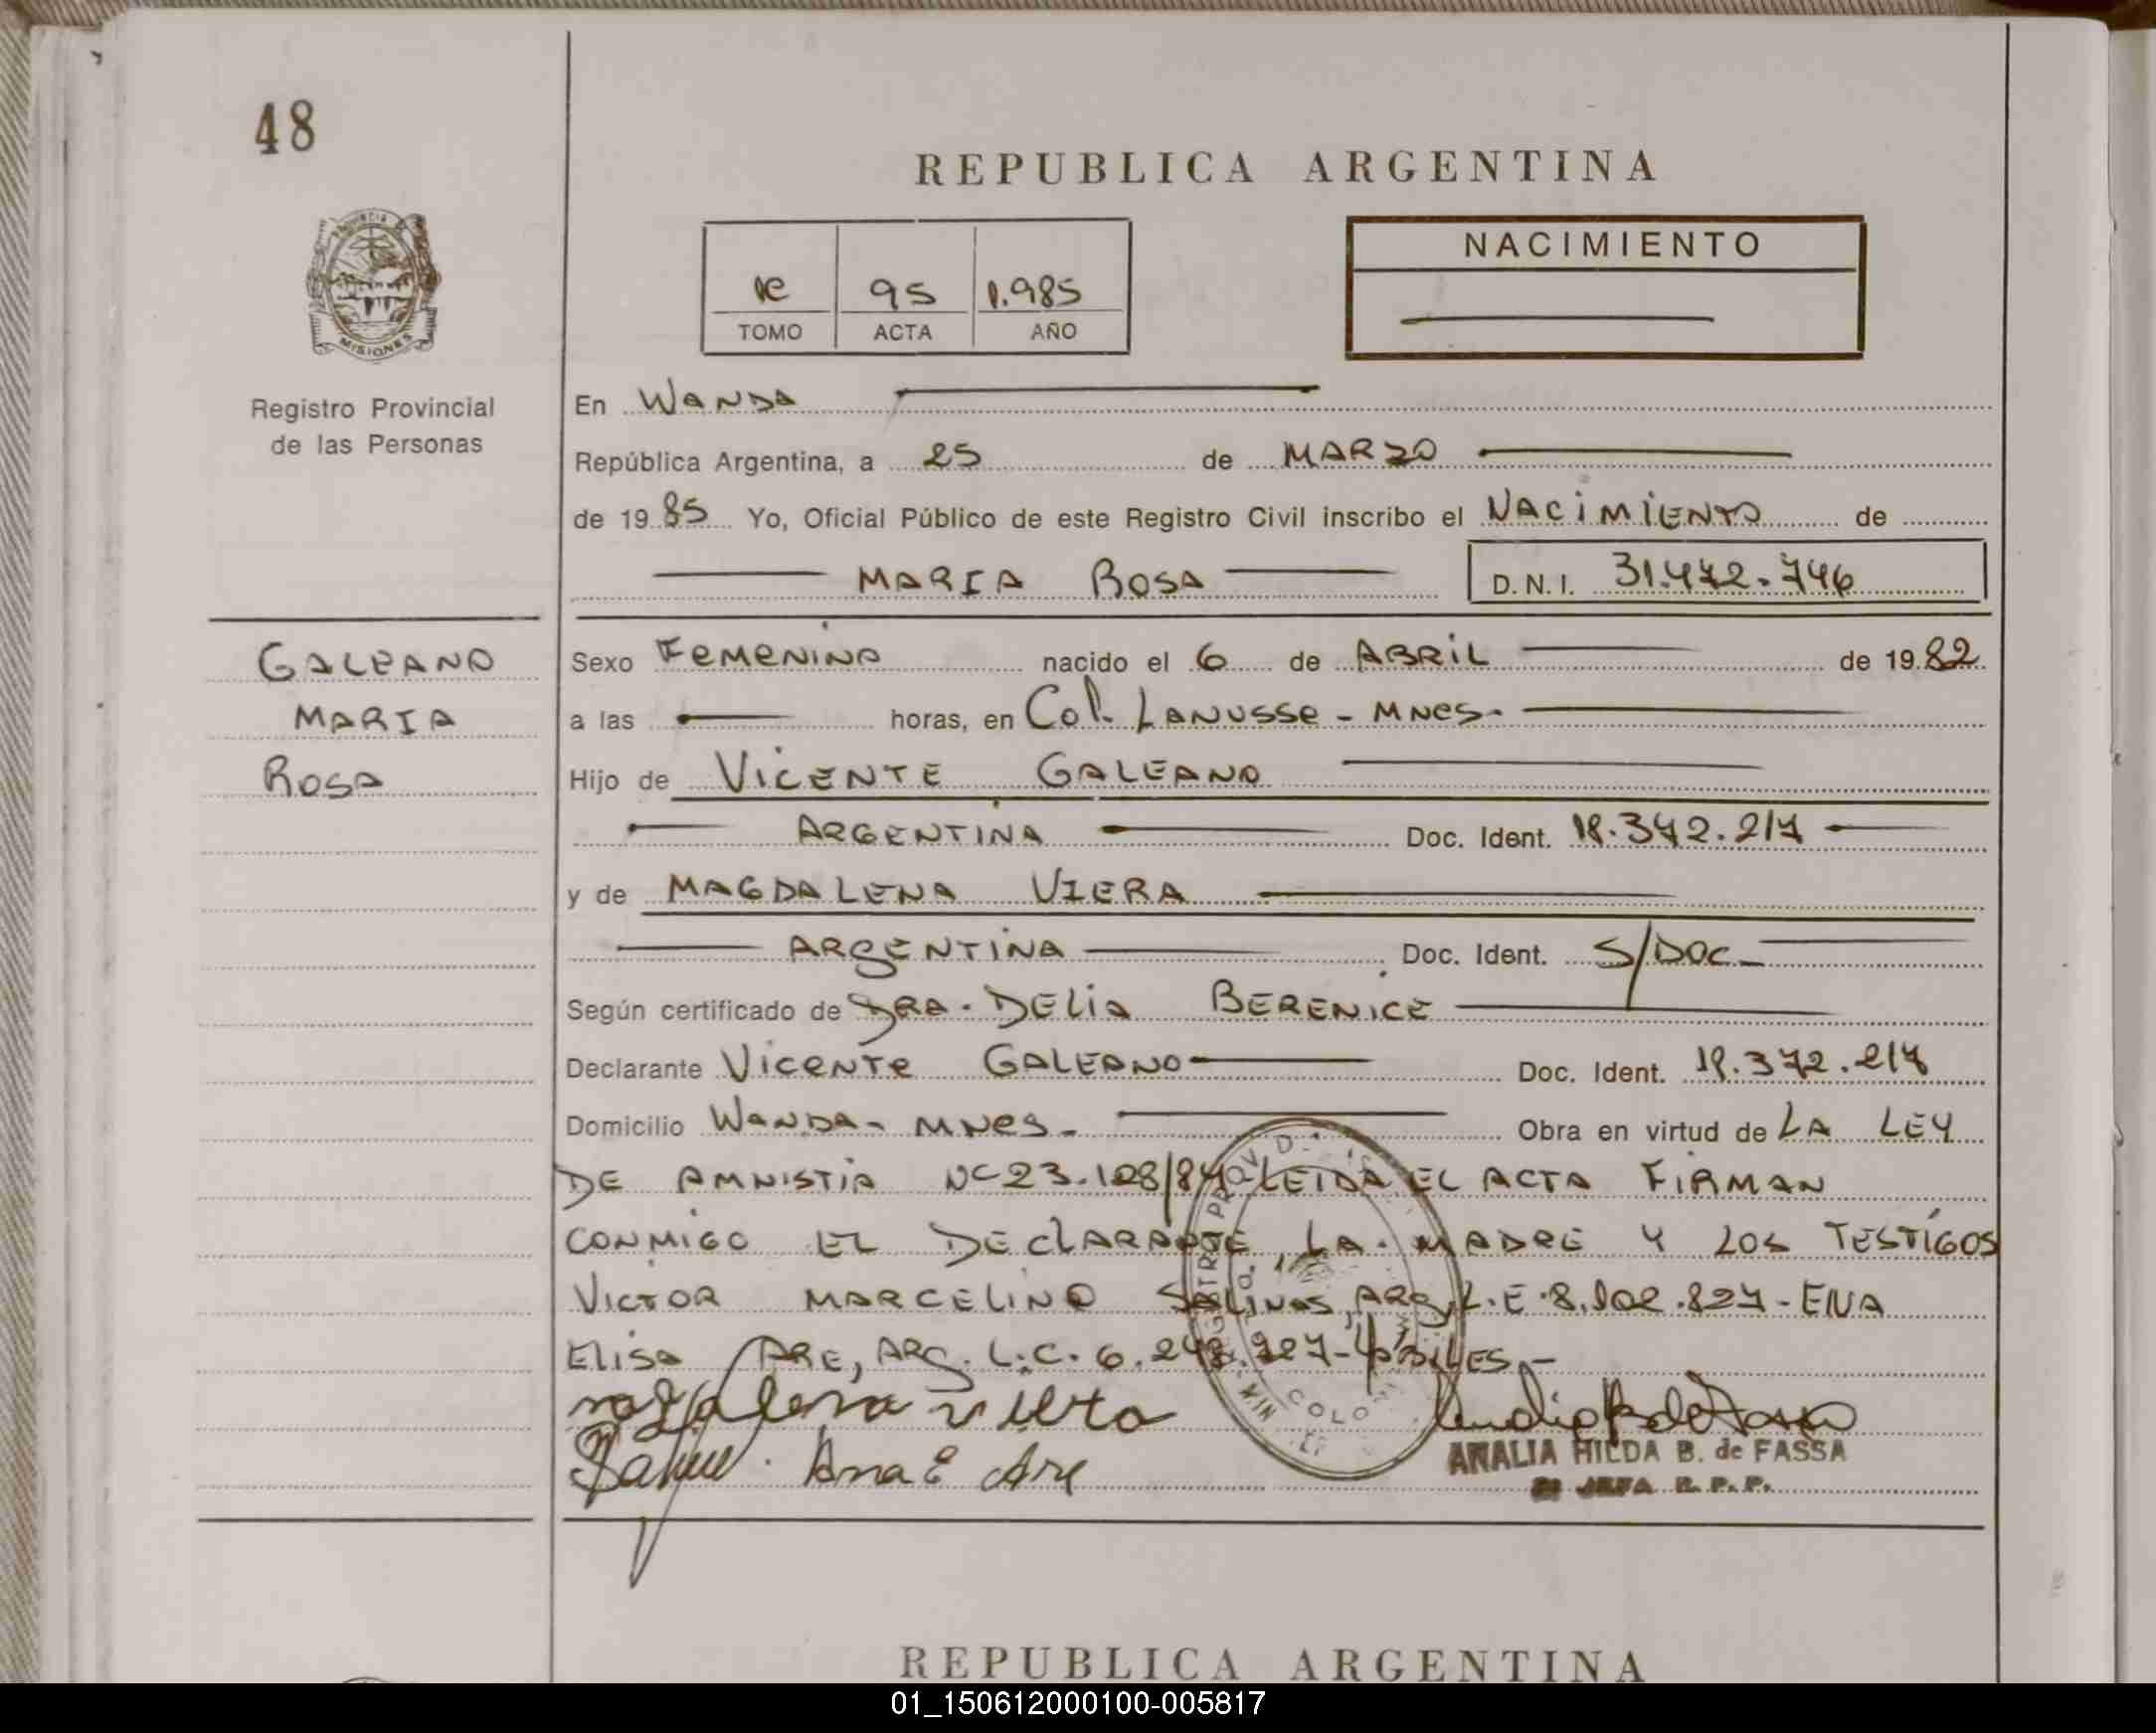 48
REPUBLICA ARGENTINA
NACIMIENTO
95 1.985
TOMO ACTA AÑO
PROVINCIA DE
MISIONES
Registro Provincial
de las Personas
En WANDA
República Argentina, a 25 de MARZO
de 1985 Yo, Oficial Público de este Registro Civil inscribo el NACIMIENTO de
MARIA ROSA D.N.I. 31.472.746
GALEANO
MARIA
ROSA
Sexo FEMENINO nacido el 6 de ABRIL de 1982
a las horas, en Col. LANUSSE - MNES.
Hijo de VICENTE GALEANO
ARGENTINA Doc. Ident. 18.372.217
y de MAGDALENA VIERA
ARGENTINA Doc. Ident. S/DOC
Según certificado de DRA. DELIA BERENICE
Declarante VICENTE GALEANO Doc. Ident. 18.372.217
Domicilio WANDA - MNES - Obra en virtud de LA LEY
DE AMNISTIA Nº 23.128/84 LEIDA EL ACTA FIRMAN
CONMIGO EL DECLARANTE, LA MADRE Y LOS TESTIGOS
VICTOR MARCELINO SALINAS, ARG. L.E. 8.802.827 - ENA
ELISA ARE, ARG. L.C. 6. HÁBILES -
magdalena viera
Ana E Are
ANALIA HILDA B. de FASSA
JEFA R.P.P.
REPUBLICA ARGENTINA
01_150612000100-005817